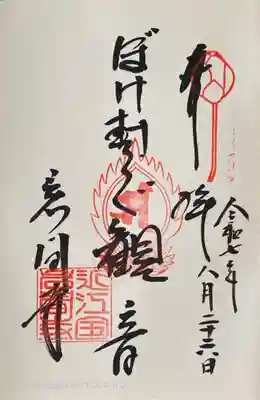 奉拝
令和七年八月二十六日
ぼけ封じ観音
岩間寺
近江国
岩間寺